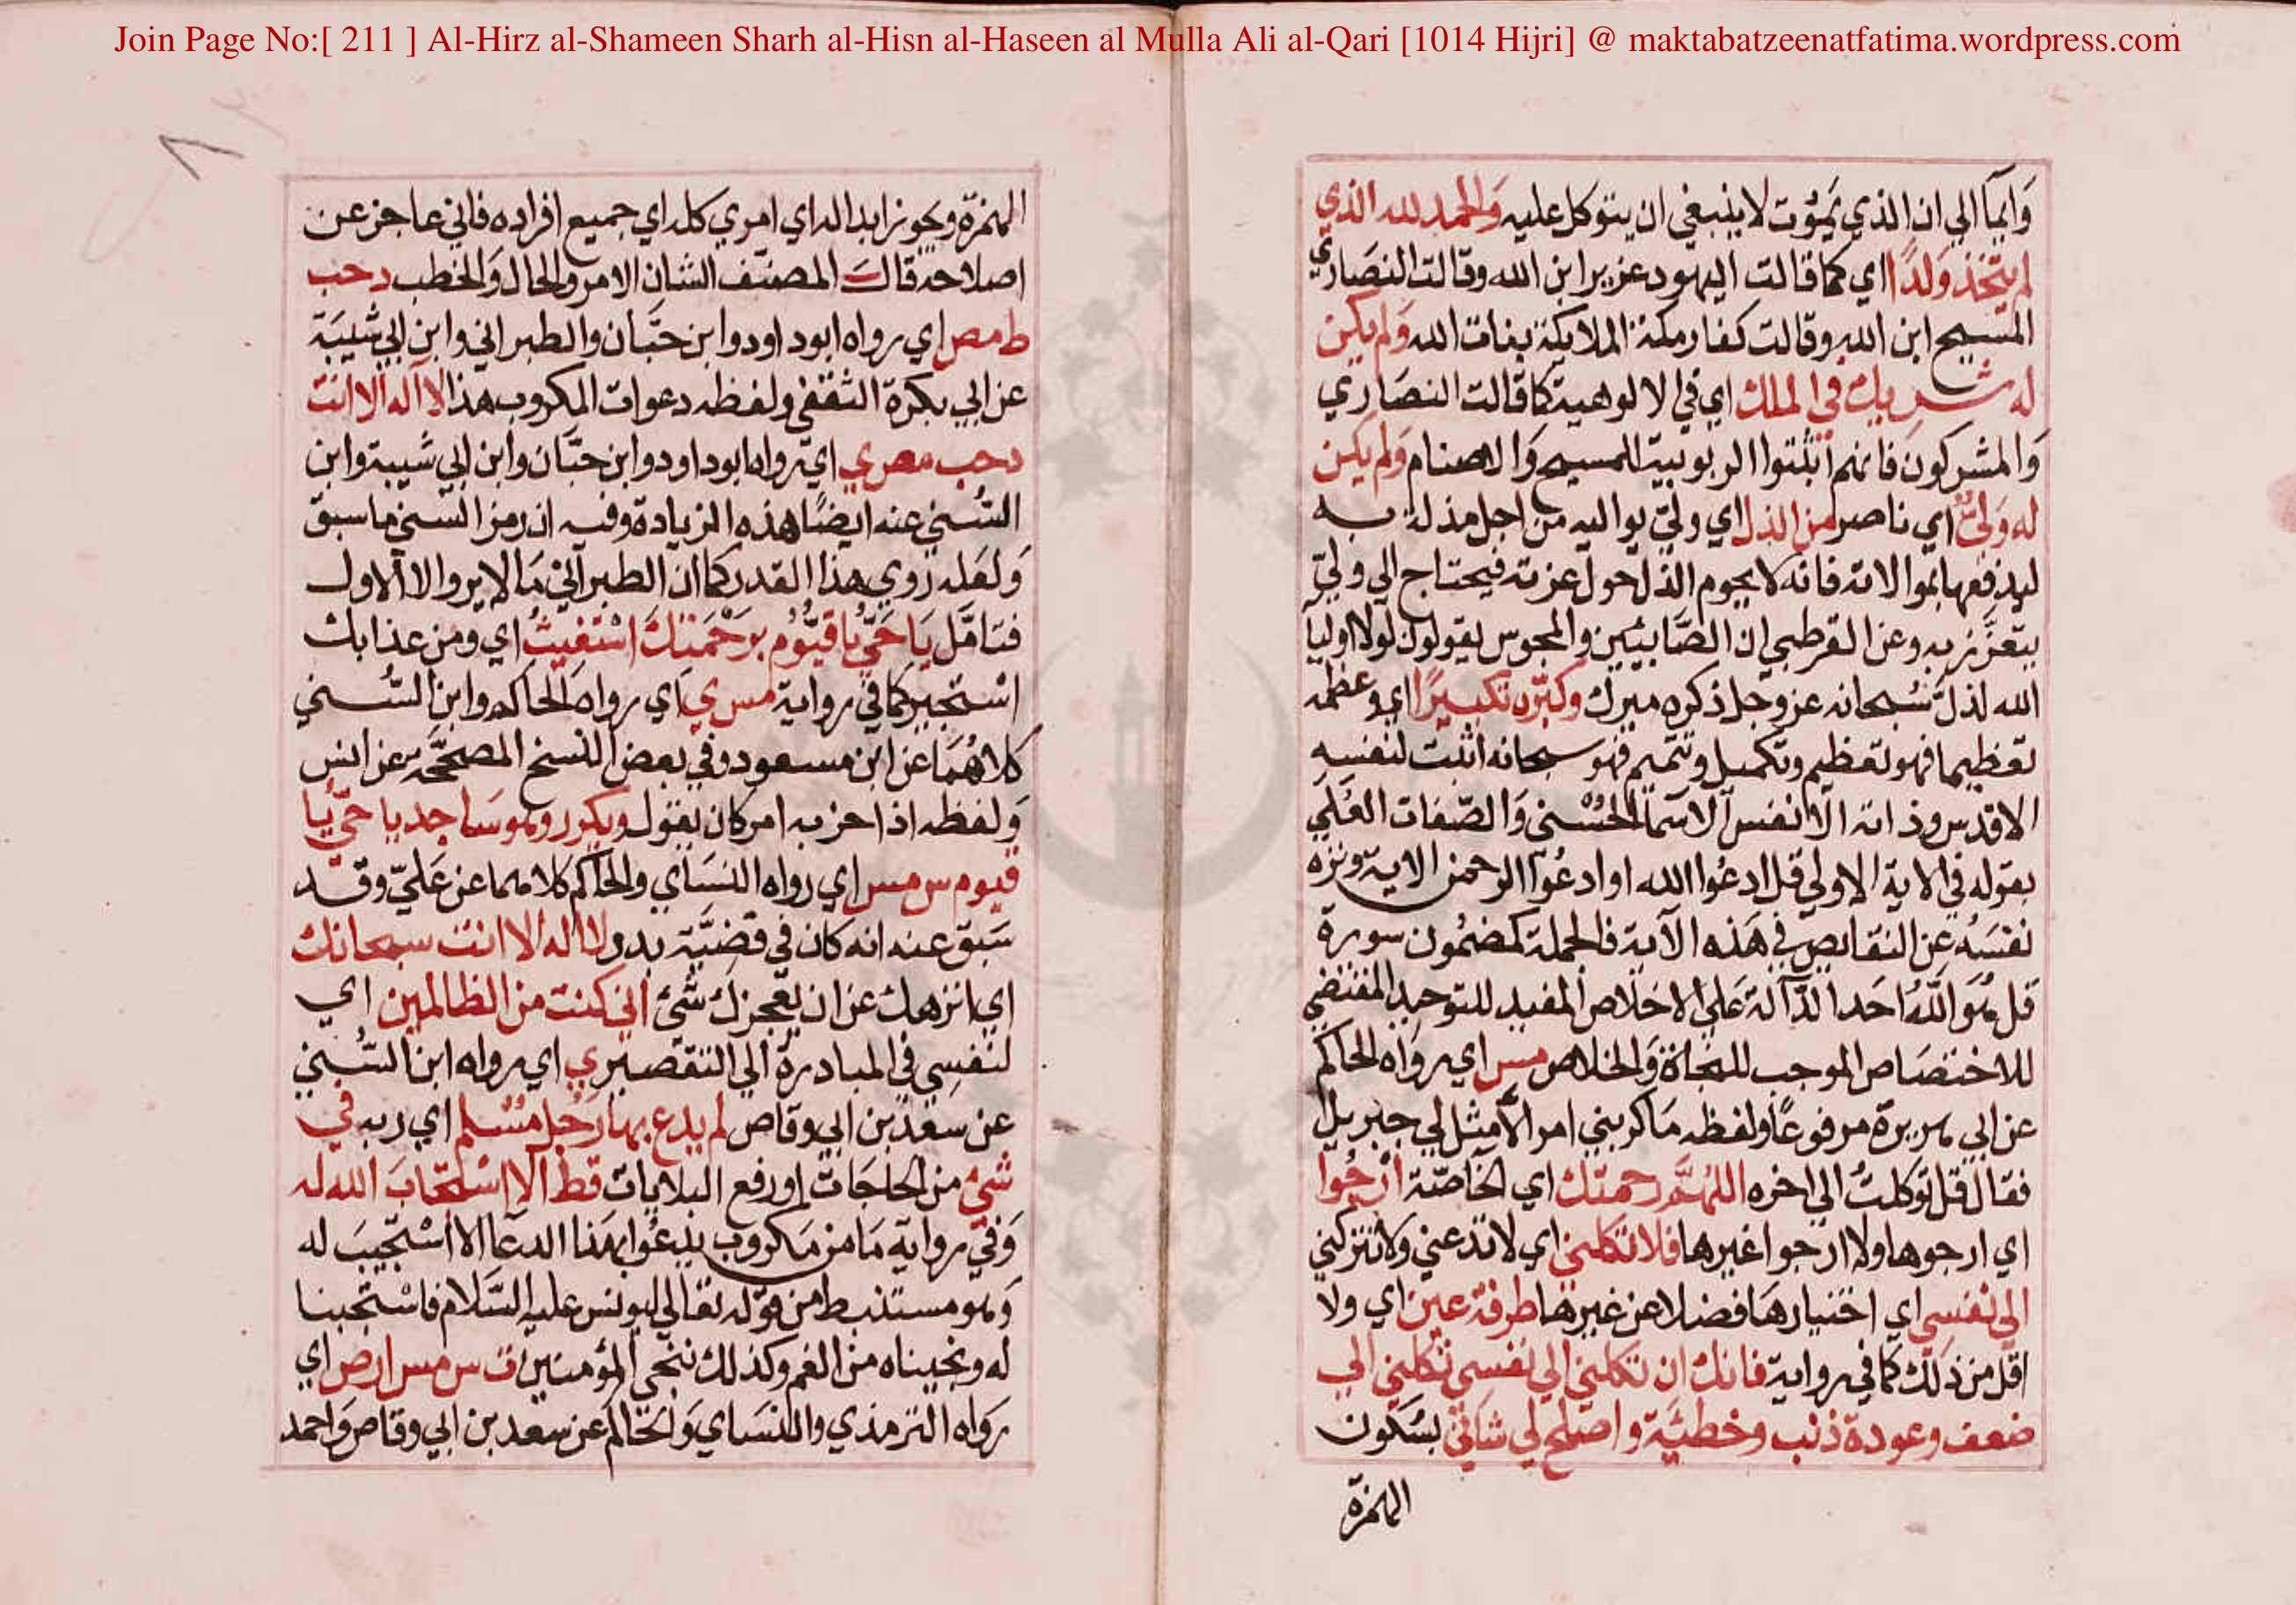 Join Page No:[ 211 ] Al-Hirz al-Shameen Sharh al-Hisn al-Haseen al Mulla Ali al-Qari [1014 Hijri] @ maktabatzeenatfatima.wordpress.com
وَايماً الي ان الذي يَمُوت لا ينبغي ان يتوكل عليه وَالحمد لله الذي
لم يتّخذ وَلدًا اي كما قالت اليهود عزير ابن الله وقالت النصَاري
المسيح ابن الله وقالت كفار مكة الملايكة بنات الله وَلم يكن
له شريك في الملك اي في الالوهية كما قالت النصَاري
وَالمشركون فانهم أثبتوا الربوبية المسيح وَالاصنام وَلم يكن
له وَليٌّ اي ناصر من الذل اي وليّ يواليه من اجل مذلة به
ليدفعها بموالاته فانه لا يحوم الذل حول عزته فيحتاج الي وليّ
يتعزز به وعن القرطبي ان الصّابيئين والمجوس يقولون لولا اوليآ
الله لذلّ سُبحانه عز وجل ذكره مبرك وكبّره تكبيرًا اي وعظمه
تعظيما فهو تعظيم وتكميل وتتميم فهو سبحانه اثبت لنفسه
الاقدس وذاته الانفس الاسمآ الحُسْنى وَالصّفات العُلَي
بقوله في الاية الاولي قل ادعُوا الله او ادعُوا الرحمن الاية ونزه
نفسَهُ عن النقايص في هَذه الآية فالجملة كمضمُون سورة
قل هُوَ اللّهُ احَد الدّآلة عَلي الاخلاص المفيد للتوحيد المقتضي
للاختصَاص الموجب للنجاة وَالخلاص مس اي روَاه الحاكم
عن ابي هريرة مرفوعًا ولفظه مَا كربني امر الا مثل لي جبريل
فقال قل توكلتُ الي اخره اللهُمَّ رحمتك اي الخاصّة ارجُوا
اي ارجوها ولا ارجوا غيرها فلا تكلني اي لا تدعني ولا تتركني
الي نفسي اي اختيارهَا فضلا عن غيرها طرفة عين اي ولا
اقل من ذلك كما في رواية فانك ان تكلني الي نفسي تكلني الي
ضعف وعودة ذنب وخطيَّة واصلح لي شاني بسُكون
الهمزة
الهمزة وَيجوز ابداله اي امري كله اي جميع افراده فاني عاجز عن
اصلاحه قال المصنّف الشان الامر والحال وَالخطب د حب
ط مص اي رواه ابو داود وابن حبَّان والطبراني وابن ابي شيبَة
عن ابي بكرة الثقفي ولفظه دعوات المكروب هذا لا آله الا انت
د حب مص ي اي رواه ابو داود وابن حبّان وابن ابي شيبة وابن
السُّني عنه ايضًا هذه الزيادة وفيه ان رمز السّني ما سبق
وَلعَله رَوي هذا القدر كما ان الطبرآني مَا لا يروا الا الاول
فتامّل يَا حَيُّ يا قيُّوم برَحْمَتكَ اسْتغيثُ اي ومن عذابك
اسْتجير كما في رواية مس ي اي رواه الحاكم وابن السُّني
كلاهُمَا عن ابن مسعود وفي بعض النسخ المصحّحة عن انس
وَلفظه اذا حزبه امر كان يقول ويكرر وهو سَاجد يا حيّ يَا
قيوم س مس اي رواه النسَاي والحاكم كلاهما عن عَليّ وقد
سَبق عنه انه كان في قضيَّة بدر لا اله الا انت سبحانك
اي انزهك عن ان يعجزك شئ اني كنت من الظالمين اي
لنفسي في المبادرة الي التقصير ي اي رواه ابن السُّني
عن سعد بن ابي وقاص لم يدع بها رَجُل مسْلم اي ربه في
شئ من الحاجَات او رفع البلايات قط الا اسْتجَابَ الله له
وَفي رواية مَا من مَكروب يدعُوا بهَذا الدعآ الا اسْتجيبَ له
وَهو مستنبط من قوله تعالي ليونس عليه السَّلام فاسْتجبنا
له ونجيناه من الغم وكذلك ننجي المؤمنين ت س مس ا ر ص اي
رَواه الترمذي والنسَاي وَالحَاكم عن سعد بن ابي وقاص وَاحمد